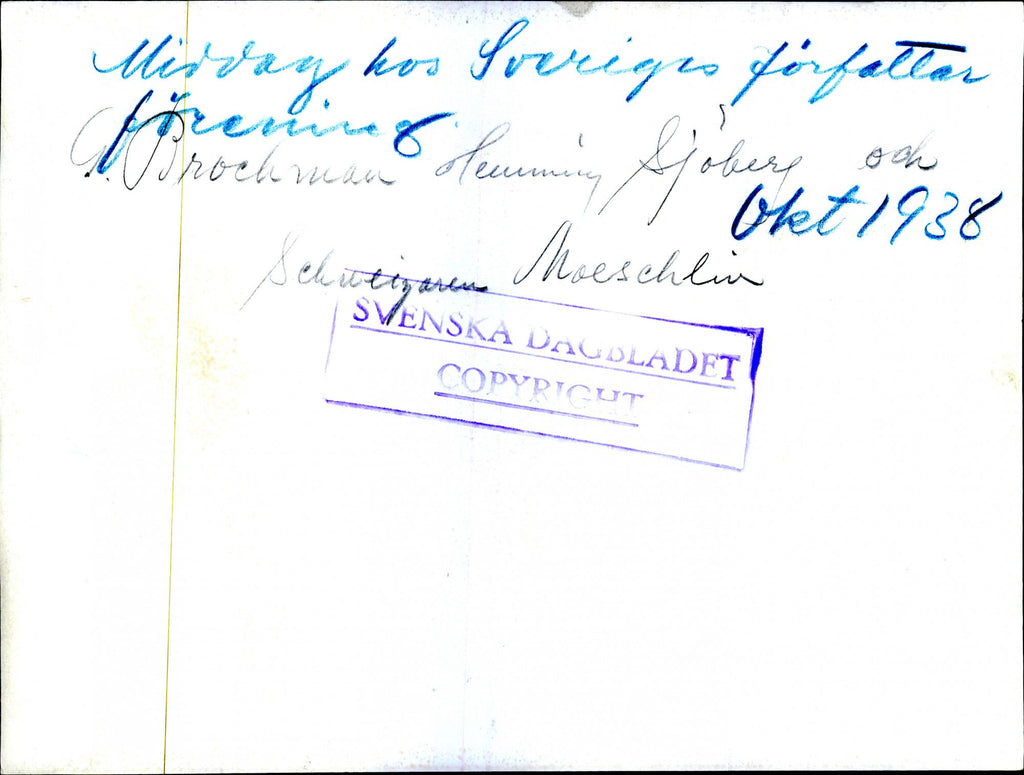 Middag hos Sveriges författar
förening.
G. Brochman Henning Sjöberg och
Okt 1938
Schweizaren Moeschlin
SVENSKA DAGBLADET
COPYRIGHT